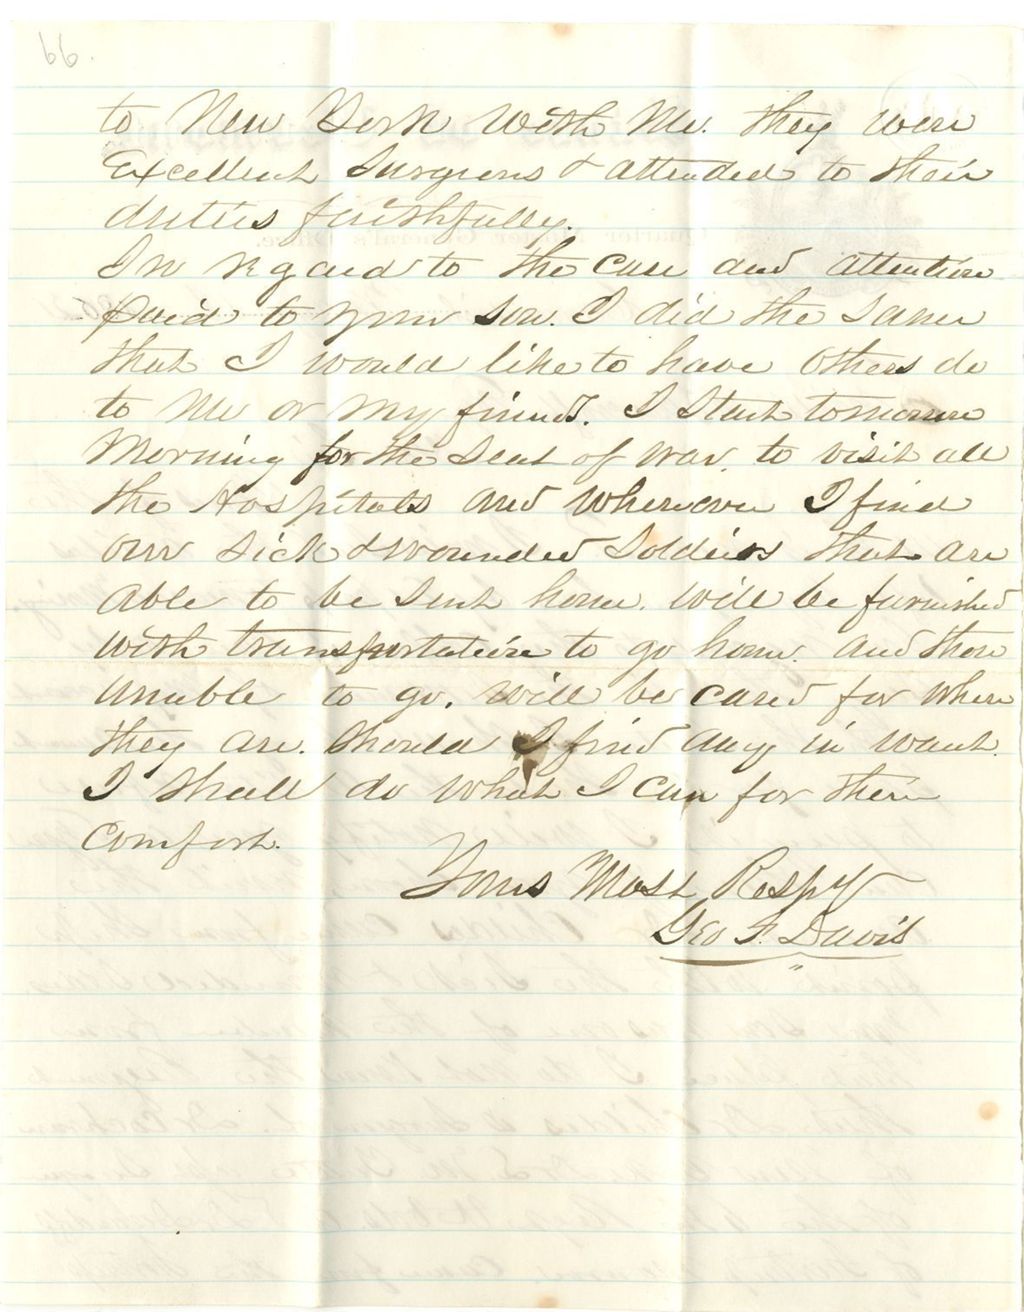 66.
to New York with Me. they were
Excellent Surgeons & attended to their
duties faithfully.
In regard to the care and attention
paid to your son. I did the same
that I would like to have others do
to Me or My friends. I Start tomorrow
Morning for the Seat of war. to visit all
the Hospitals and wherever I find
our Sick & wounded Soldiers that are
able to be Sent home. will be furnished
with transportation to go home. and those
unable to go. will be cared for where
they are. Should I find any in want.
I Shall do what I can for their
Comfort.
Yours Most Respy
Geo F. Davis